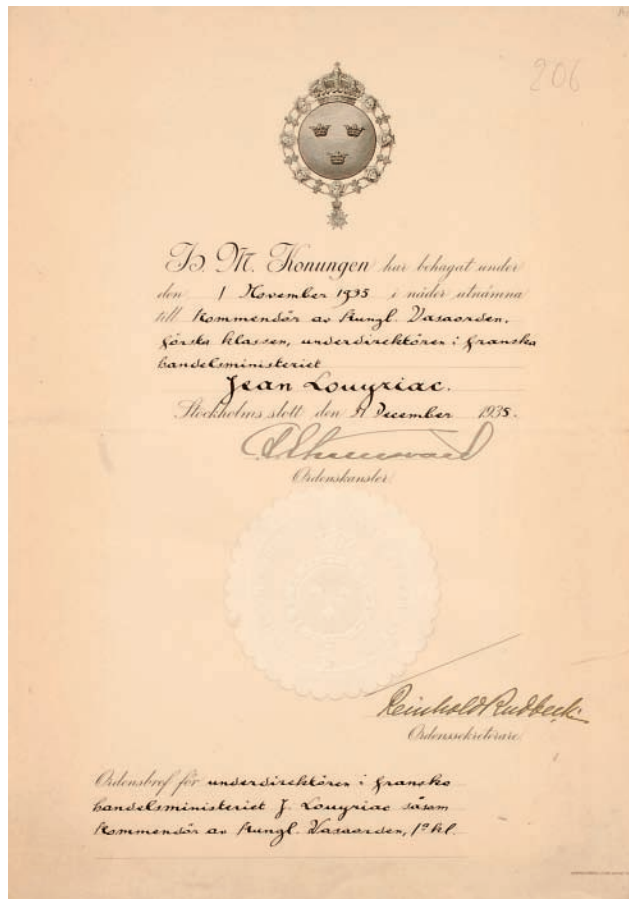 206
H. M. Konungen har behagat under
den 1 November 1935 i nåder utnämna
till Kommendör av Kungl. Vasaorden,
första klassen, underdirektören i franska
handelsministeriet
Jean Louyriac.
Stockholms slott den December 1935.
Ordenskansler
Reinhold Rudbeck
Ordenssekreterare
Ordensbref för underdirektören i franska
handelsministeriet J. Louyriac såsom
Kommendör av Kungl. Vasaorden, 1º kl.